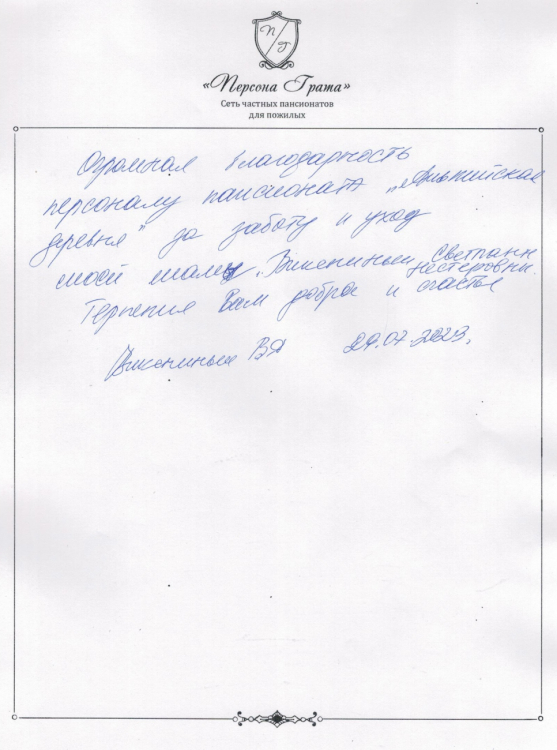 П Г
«Персона Грата»
Сеть частных пансионатов
для пожилых
Огромная благодарность
персоналу пансионата „Альпийская
деревня" за заботу и уход
моей мамы, Светланы
Нестеровны.
Терпения Вам добра и счастья